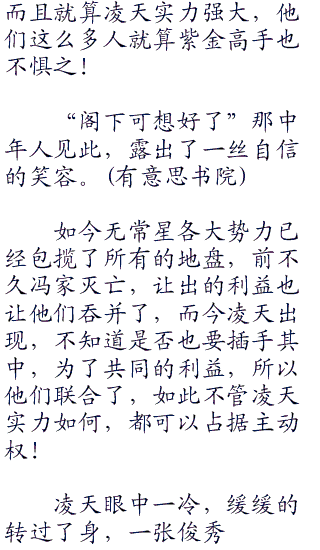 而且就算凌天实力强大，他
们这么多人就算紫金高手也
不惧之！
“阁下可想好了”那中
年人见此，露出了一丝自信
的笑容。(有意思书院)
如今无常星各大势力已
经包揽了所有的地盘，前不
久冯家灭亡，让出的利益也
让他们吞并了，而今凌天出
现，不知道是否也要插手其
中，为了共同的利益，所以
他们联合了，如此不管凌天
实力如何，都可以占据主动
权！
凌天眼中一冷，缓缓的
转过了身，一张俊秀